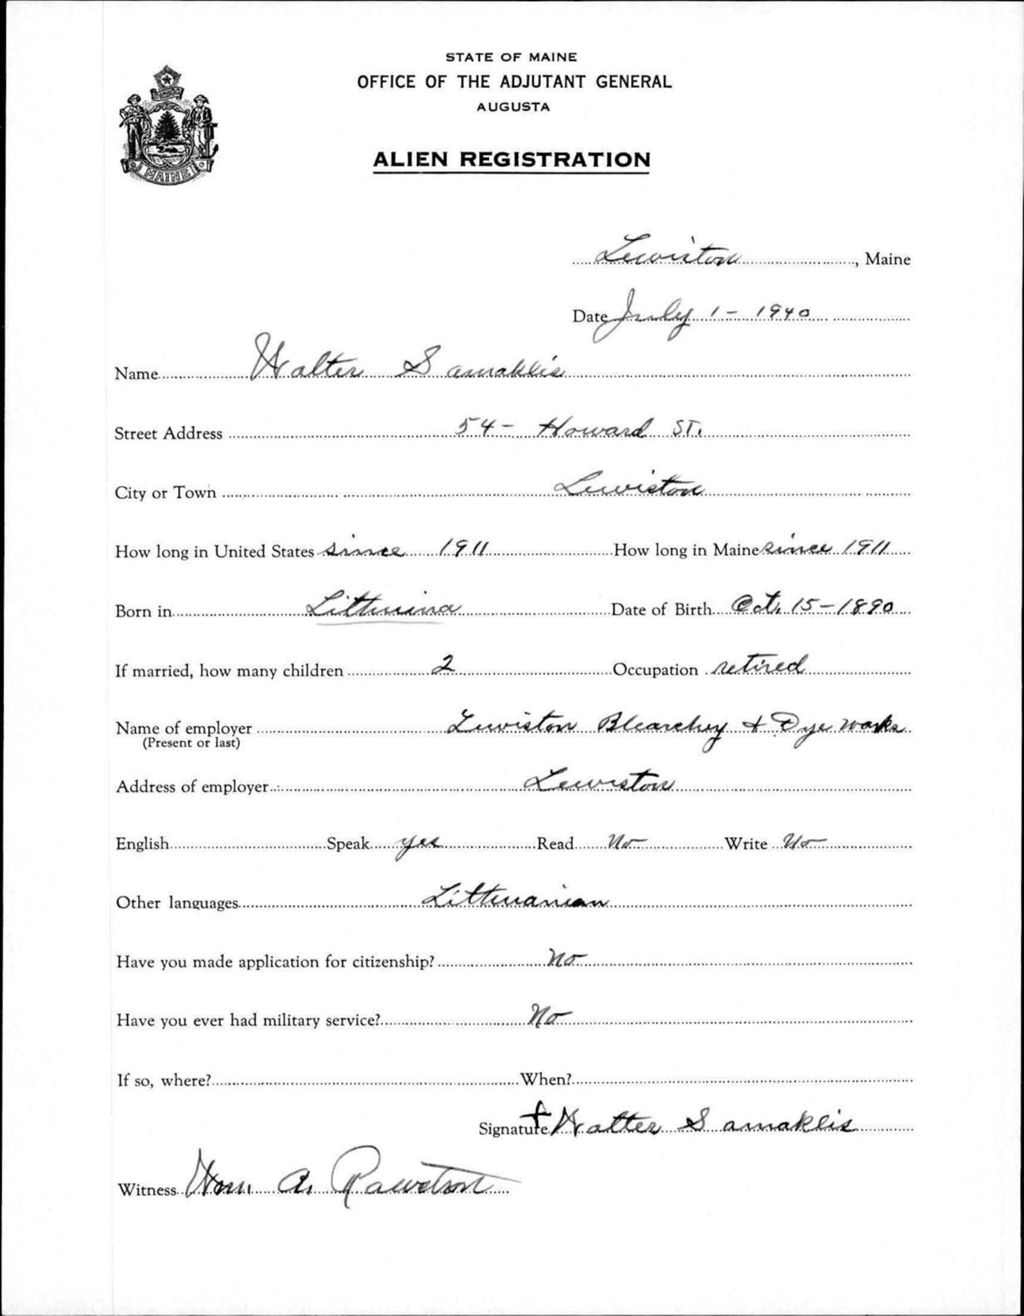 STATE OF MAINE
OFFICE OF THE ADJUTANT GENERAL
AUGUSTA
ALIEN REGISTRATION
MAINE
Lewiston, Maine
Date July 1 - 1940
Name Walter Samaklis
Street Address 54 - Howard ST.
City or Town Lewiston
How long in United States since 1911 How long in Maine since 1911
Born in Lithuina Date of Birth Oct. 15-1890
If married, how many children 2 Occupation retired
Name of employer Lewiston Bleachey & Dye Works
(Present or last)
Address of employer Lewiston
English Speak yes Read No Write No
Other languages Lithuanian
Have you made application for citizenship? No
Have you ever had military service? No
If so, where? When?
Signature Walter Samaklis
Witness Wm. A.